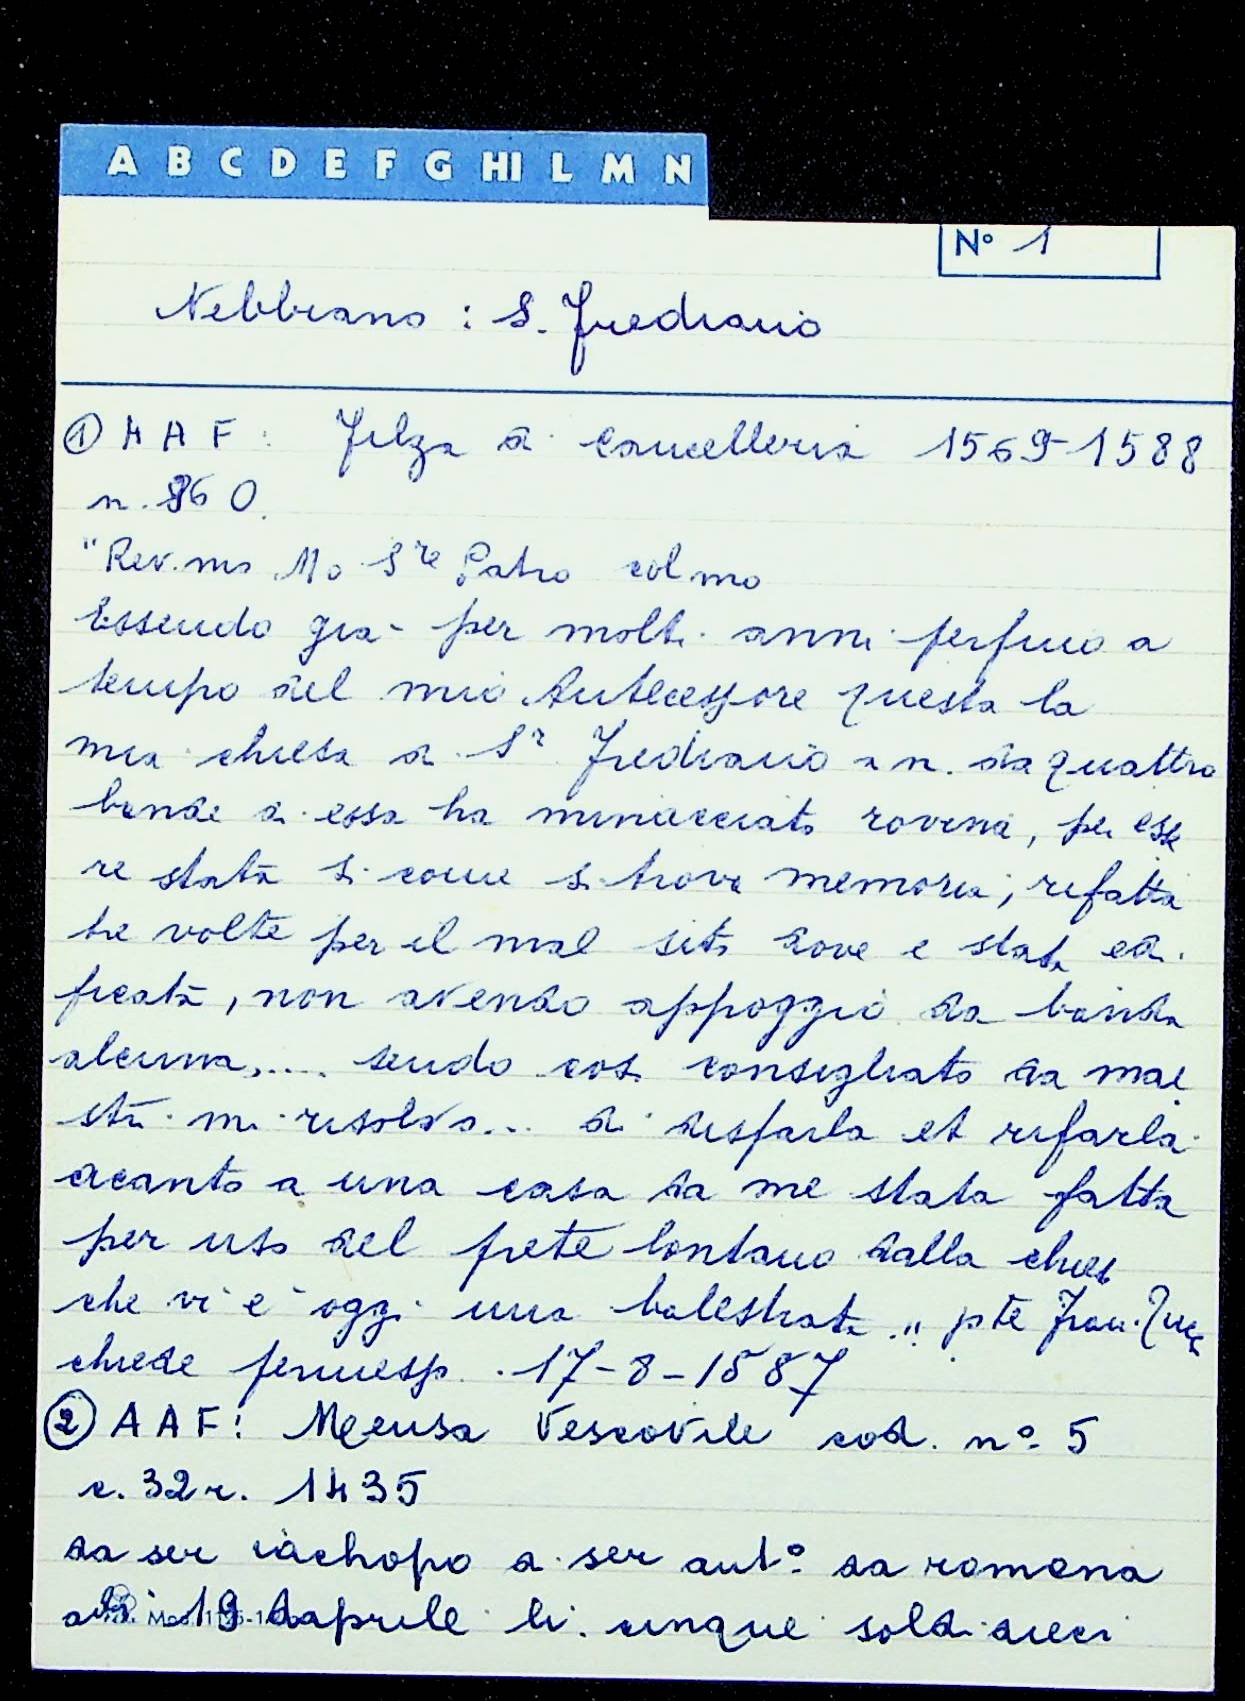 A B C D E F G HI L M N
N° 1
Nebbiano : S. Frediano
① A A F : Filza di Cancelleria 1569-1588
n. 860.
"Rev.mo Mo Sre Patro colmo
Essendo gia per molti anni perfino a
tempo del mio Antecessore questa la
mia chiesa di Sr Frediano a n. da quattro
bande di essa ha minacciato rovina, per esse
re stata si come si trova memoria, rifatta
tre volte per il mal sito dove e stata edi
ficata, non avendo appoggio da banda
alcuna,.... sendo cosi consigliato da mae
stri mi risolvo... di disfarla et rifarla
acanto a una casa da me stata fatta
per uso del prete lontano dalla chiesa
che vi e' oggi una balestrata." pte Fran.
chiede permesso. 17-8-1587
② A A F: Mensa Vescovile cod. n° 5
c. 32r. 1435
da ser iachopo di ser ant° da romena
adi 19 daprile li. cinque soldi dieci